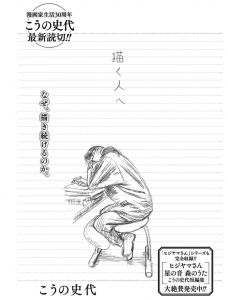 漫画家生活30周年
こうの史代
最新読切!!
描く人へ
なぜ、描き続けるのか。
こうの史代
「ヒジヤマさん」シリーズも
完全収録!!
ヒジヤマさん
星の音 森のうた
こうの史代短編集
大絶賛発売中!!